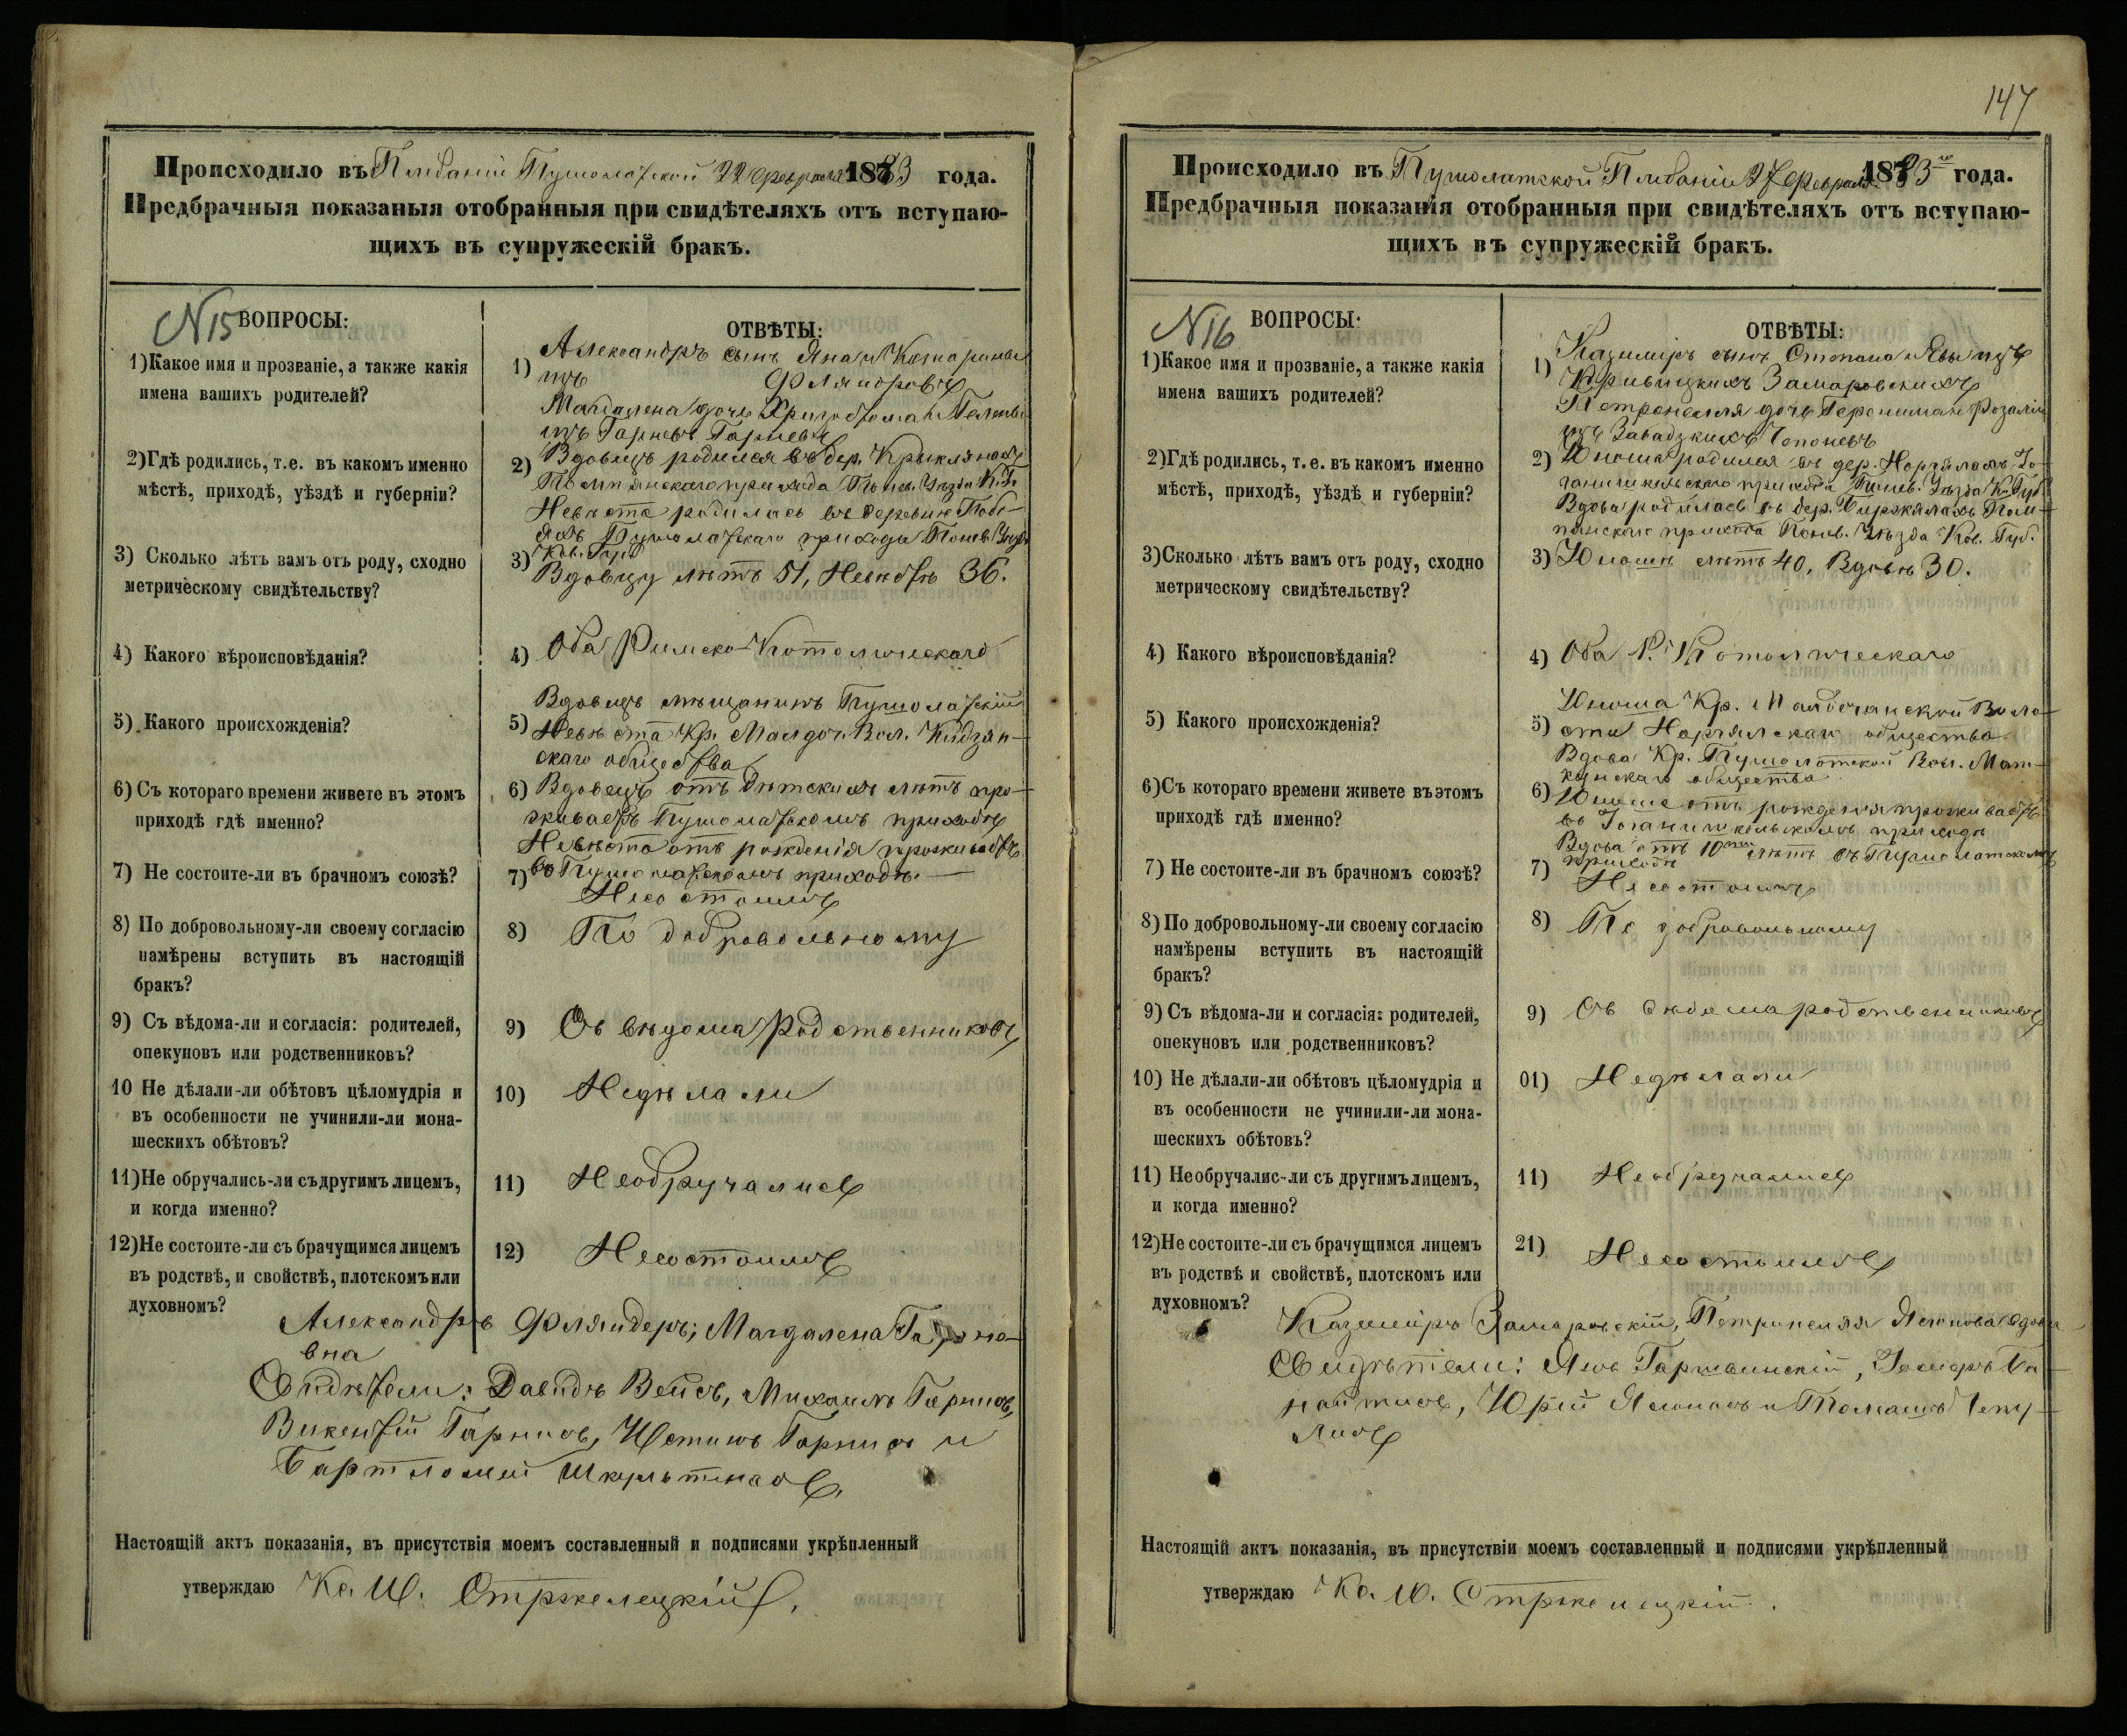 Происходило въ Плебаніи Пушолатской 22 Февраля 1883 года.
Предбрачныя показаныя отобранныя при свидѣтеляхъ отъ вступаю-
щихъ въ супружескій бракъ.
N 15
ВОПРОСЫ:
ОТВѢТЫ:
1)Какое имя и прозваніе, а также какія
имена вашихъ родителей?
1) Александръ сынъ Яна и Катарины
изъ Фляндровъ
Магдалена дочь Хризостома и Гелены
изъ Гарневъ Гарневъ
2)Гдѣ родились, т.е. въ какомъ именно
мѣстѣ, приходѣ, уѣздѣ и губерніи?
2) Вдовецъ родился въ дер. Криклянахъ
Помпянскаго прихода Понев. Уѣзда К. Г.
Невѣста родилась въ деревнѣ
Пушолатскаго прихода Понев. Уѣзда
Ков. Губ.
3) Сколько лѣтъ вамъ отъ роду, сходно
метрическому свидѣтельству?
3) Вдовцу лѣтъ 51, Невѣстѣ 36.
4) Какого вѣроисповѣданія?
4) Оба Римско-Католическаго
5) Какого происхожденія?
Вдовецъ мѣщанинъ Пушолатскій
5) Невѣста Кр. Малдоч. Вол.
скаго общества
6) Съ котораго времени живете въ этомъ
приходѣ гдѣ именно?
6) Вдовецъ отъ дѣтскихъ лѣтъ про-
живаетъ Пушолатскомъ приходѣ
Невѣста отъ рожденія проживаетъ
во Пушолатскомъ приходѣ.
7) Не состоите-ли въ брачномъ союзѣ?
7) Несостоимъ
8) По добровольному-ли своему согласію
намѣрены вступить въ настоящій
бракъ?
8) По добровольному
9) Съ вѣдома-ли и согласія: родителей,
опекуновъ или родственниковъ?
9) Съ вѣдома родственниковъ
10 Не дѣлали-ли обѣтовъ цѣломудрія и
въ особенности не учинили-ли мона-
шескихъ обѣтовъ?
10) Недѣлали
11)Не обручались-ли съ другимъ лицемъ,
и когда именно?
11) Необручались
12)Не состоите-ли съ брачущимся лицемъ
въ родствѣ, и свойствѣ, плотскомъ или
духовномъ?
12) Несостоимъ
Александръ Фляндеръ; Магдалена Гарне-
вна
Свидѣтели: Давидъ Вейсъ, Михаилъ Гарнисъ,
Викентій Гарнисъ, Устинъ Гарнисъ и
Бартломей Шкультинасъ.
Настоящій актъ показанія, въ присутствіи моемъ составленный и подписями укрѣпленный
утверждаю Кс. Ш. Стржелецкій.
147
Происходило въ Пушолатской Плебаніи 27 Февраля 1883 года.
Предбрачныя показанія отобранныя при свидѣтеляхъ отъ вступаю-
щихъ въ супружескій бракъ.
N 16
ВОПРОСЫ:
ОТВѢТЫ:
1)Какое имя и прозваніе, а также какія
имена вашихъ родителей?
1) Казиміръ сынъ Степана и Евы изъ
Кривицкихъ Замаровскихъ
Петронеля дочь Геронима и Розаліи
изъ Завадзкихъ
2)Гдѣ родились, т. е. въ какомъ именно
мѣстѣ, приходѣ, уѣздѣ и губерніи?
2) Юноша родился въ дер. Норгялахъ Іо-
ганишкельскаго прихода Понев. Уѣзда К. Губ.
Вдова родилась въ дер. Биржялахъ Пом-
пянскаго прихода Понев. Уѣзда Ков. Губ.
3)Сколько лѣтъ вамъ отъ роду, сходно
метрическому свидѣтельству?
3) Юношѣ лѣтъ 40, Вдовѣ 30.
4) Какого вѣроисповѣданія?
4) Оба Р. Католическаго
5) Какого происхожденія?
Юноша Кр. Малдочанской Воло-
5) сти Норгялскаго общества
Вдова Кр. Пушолотской Вол.
общества
6)Съ котораго времени живете въ этомъ
приходѣ гдѣ именно?
6) Юноша отъ рожденія проживаетъ
въ Іоганишкельскомъ приходѣ
Вдова отъ 10 лѣтъ въ Пушолатскомъ
приходѣ
7) Не состоите-ли въ брачномъ союзѣ?
7) Несостоимъ
8) По добровольному-ли своему согласію
намѣрены вступить въ настоящій
бракъ?
8) По добровольному
9) Съ вѣдома-ли и согласія: родителей,
опекуновъ или родственниковъ?
9) Съ вѣдома родственниковъ
10) Не дѣлали-ли обѣтовъ цѣломудрія и
въ особенности не учинили-ли мона-
шескихъ обѣтовъ?
01) Недѣлали
11) Не обручалис-ли съ другимъ лицемъ,
и когда именно?
11) Необручались
12)Не состоите-ли съ брачущимся лицемъ
въ родствѣ и свойствѣ, плотскомъ или
духовномъ?
21) Несостоимъ
Казиміръ Замаровскій, Петронеля вдова
Свидѣтели: Янъ Гаршвинскій,
Юрій и Томашъ Чепу-
лисъ
Настоящій актъ показанія, въ присутствіи моемъ составленный и подписями укрѣпленный
утверждаю Кс. Ш. Стржелецкій.